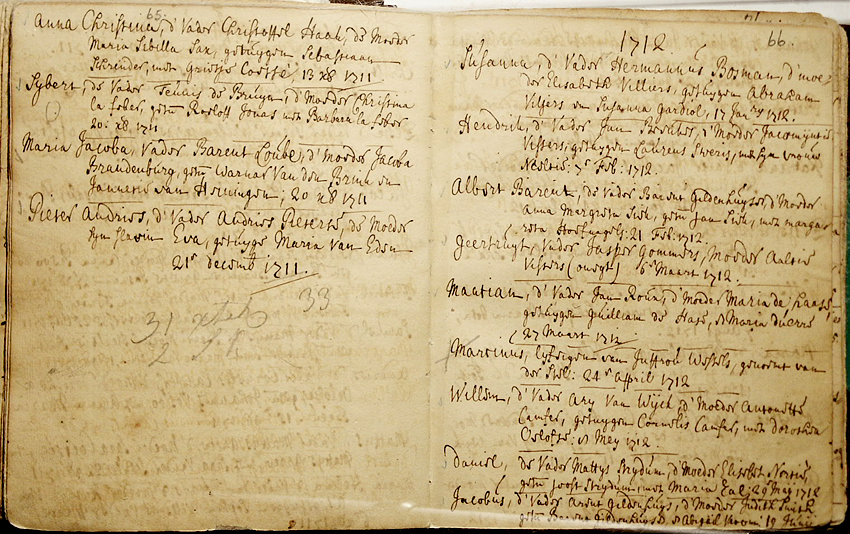 65.
Anna Christina, d' Vader Christoffel Haak, de Moeder
Maria Sibilla Sax, getuygen Sebastiaan
Schreuder, met Grietje 13 x8 1711
Sybert, de Vader Teunis de Bruyn, d' Moeder Christina
la Febre, getu Roeloff Jonas met Barbara la Febre
20: x8 1711
Maria Jacoba, Vader Barent d' Moeder Jacoba
Brandenburg, getu Warnar Van den Brink en
Jannetie van Heiningen; 20 x8 1711
Pieter Andries, d' Vader Andries Pieterse, de Moeder
syn slavin Eva, getuyge Maria Van Eden
21e decemb 1711.
31 33
2
66.
1712
Susanna, d' Vader Hermannus Bosman, d' moe
der Elisabeth Villiers, getuygen Abraham
Viljers en Susanna Gardiol, 17 Janry 1712.
Hendrik, d' Vader Jan d' Moeder Jacomyntie
Vissers, getuygen Laurens met syn vrouw
7e Feb: 1712.
Albert Barent, de Vader Barent Gildenhuyse, d' Moeder
Anna Margreta Siek, getu Jan Siek, met marga
reta 21 Feb. 1712.
Geertruyt, Vader Jasper Gommers, Moeder Aaltie
Vissers (onegt) 6e Maart 1712.
d' Vader Jan d' Moeder Maria de
getuygen Guilliam de en Maria
27 Maart 1712
Marcinus, lyfeigen van Juffrou Wessels, genoemt van
der Stel: 24e April 1712
Willem, d' Vader Ary Van Wyck, d' Moeder Antonette
Camfer, getuygen Cornelis Camfer, met Dorothea
Oelofse, Mey 1712
Daniel, de Vader Mattys Strydum, d' Moeder Elisabet
getu Joost Strydum, met Maria 29 May 1712
Jacobus, d' Vader Arent Gildenhuys, d' Moeder Judith
getu Barent Gildenhuyse, 19 Junii